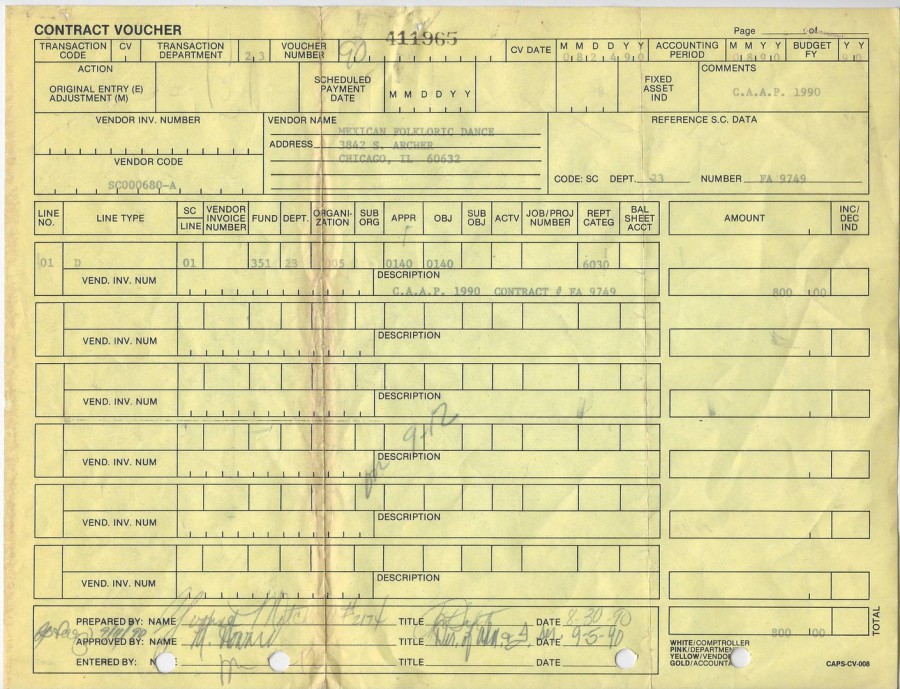 CONTRACT VOUCHER
Page of
TRANSACTION CODE CV TRANSACTION DEPARTMENT 2 3 VOUCHER NUMBER 90 411965 CV DATE M M D D Y Y 0 8 2 4 9 0 ACCOUNTING PERIOD M M Y Y 0 8 9 0 BUDGET FY Y Y 9 0
ACTION
ORIGINAL ENTRY (E)
ADJUSTMENT (M)
SCHEDULED PAYMENT DATE M M D D Y Y
FIXED ASSET IND
COMMENTS
C.A.A.P. 1990
VENDOR INV. NUMBER
VENDOR NAME
MEXICAN FOLKLORIC DANCE
ADDRESS 3842 S. ARCHER
CHICAGO, IL 60632
REFERENCE S.C. DATA
VENDOR CODE
SC000680-A
CODE: SC DEPT. 23 NUMBER FA 9749
LINE NO. LINE TYPE SC LINE VENDOR INVOICE NUMBER FUND DEPT. ORGANI-ZATION SUB ORG APPR OBJ SUB OBJ ACTV JOB/PROJ NUMBER REPT CATEG BAL SHEET ACCT AMOUNT INC/DEC IND
01 D 01 351 23 005 0140 0140 6030
VEND. INV. NUM DESCRIPTION
C.A.A.P. 1990 CONTRACT # FA 9749 800 00
VEND. INV. NUM DESCRIPTION
VEND. INV. NUM DESCRIPTION
9-12
VEND. INV. NUM DESCRIPTION
VEND. INV. NUM DESCRIPTION
VEND. INV. NUM DESCRIPTION
PREPARED BY: NAME #2174 TITLE DATE 8-30-90
APPROVED BY: NAME TITLE DATE 9-5-90
ENTERED BY: NAME TITLE DATE
800 00 TOTAL
WHITE/COMPTROLLER
PINK/DEPARTMENT
YELLOW/VENDOR
GOLD/ACCOUNTA
CAPS-CV-008